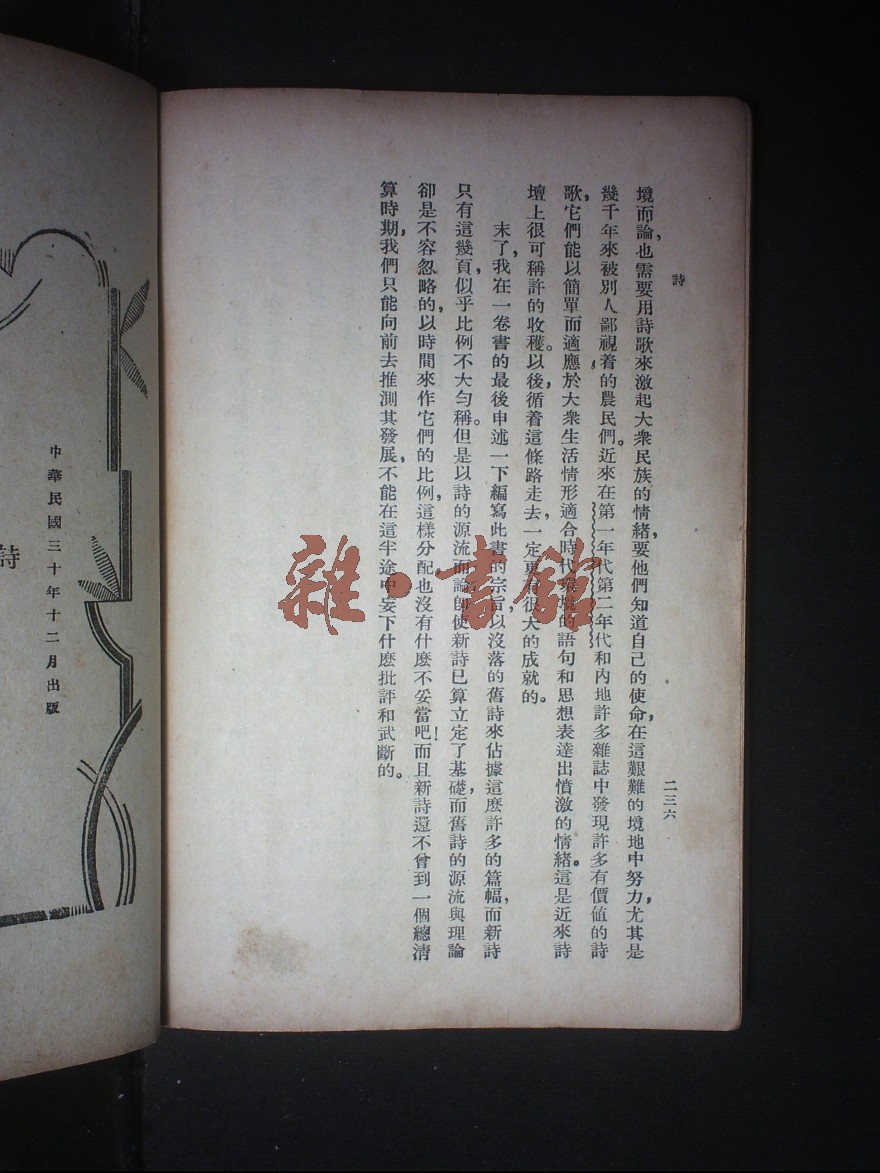 詩
二三六
境而論，也需要用詩歌來激起大衆民族的情緒，要他們知道自己的使命，在這艱難的境地中努力，尤其是
幾千年來被別人鄙視着的農民們。近來在第一年代第二年代和內地許多雜誌中發現許多有價値的詩
歌，它們能以簡單而適應於大衆生活情形，適合時代環境的語句和思想表達出憤激的情緒。這是近來詩
壇上很可稱許的收穫。以後，循着這條路走去，一定更有很大的成就的。
末了，我在一卷書的最後申述一下編寫此書的宗旨，以沒落的舊詩來佔據這麽許多的篇幅，而新詩
只有這幾頁，似乎比例不大勻稱。但是以詩的源流而論，卽使新詩已算立定了基礎，而舊詩的源流與理論
卻是不容忽略的，以時間來作它們的比例，這樣分配也沒有什麽不妥當吧！而且新詩還不曾到一個總清
算時期，我們只能向前去推測其發展，不能在這半途中妄下什麽批評和武斷的。
中華民國三十年十二月出版
詩
雜·書館